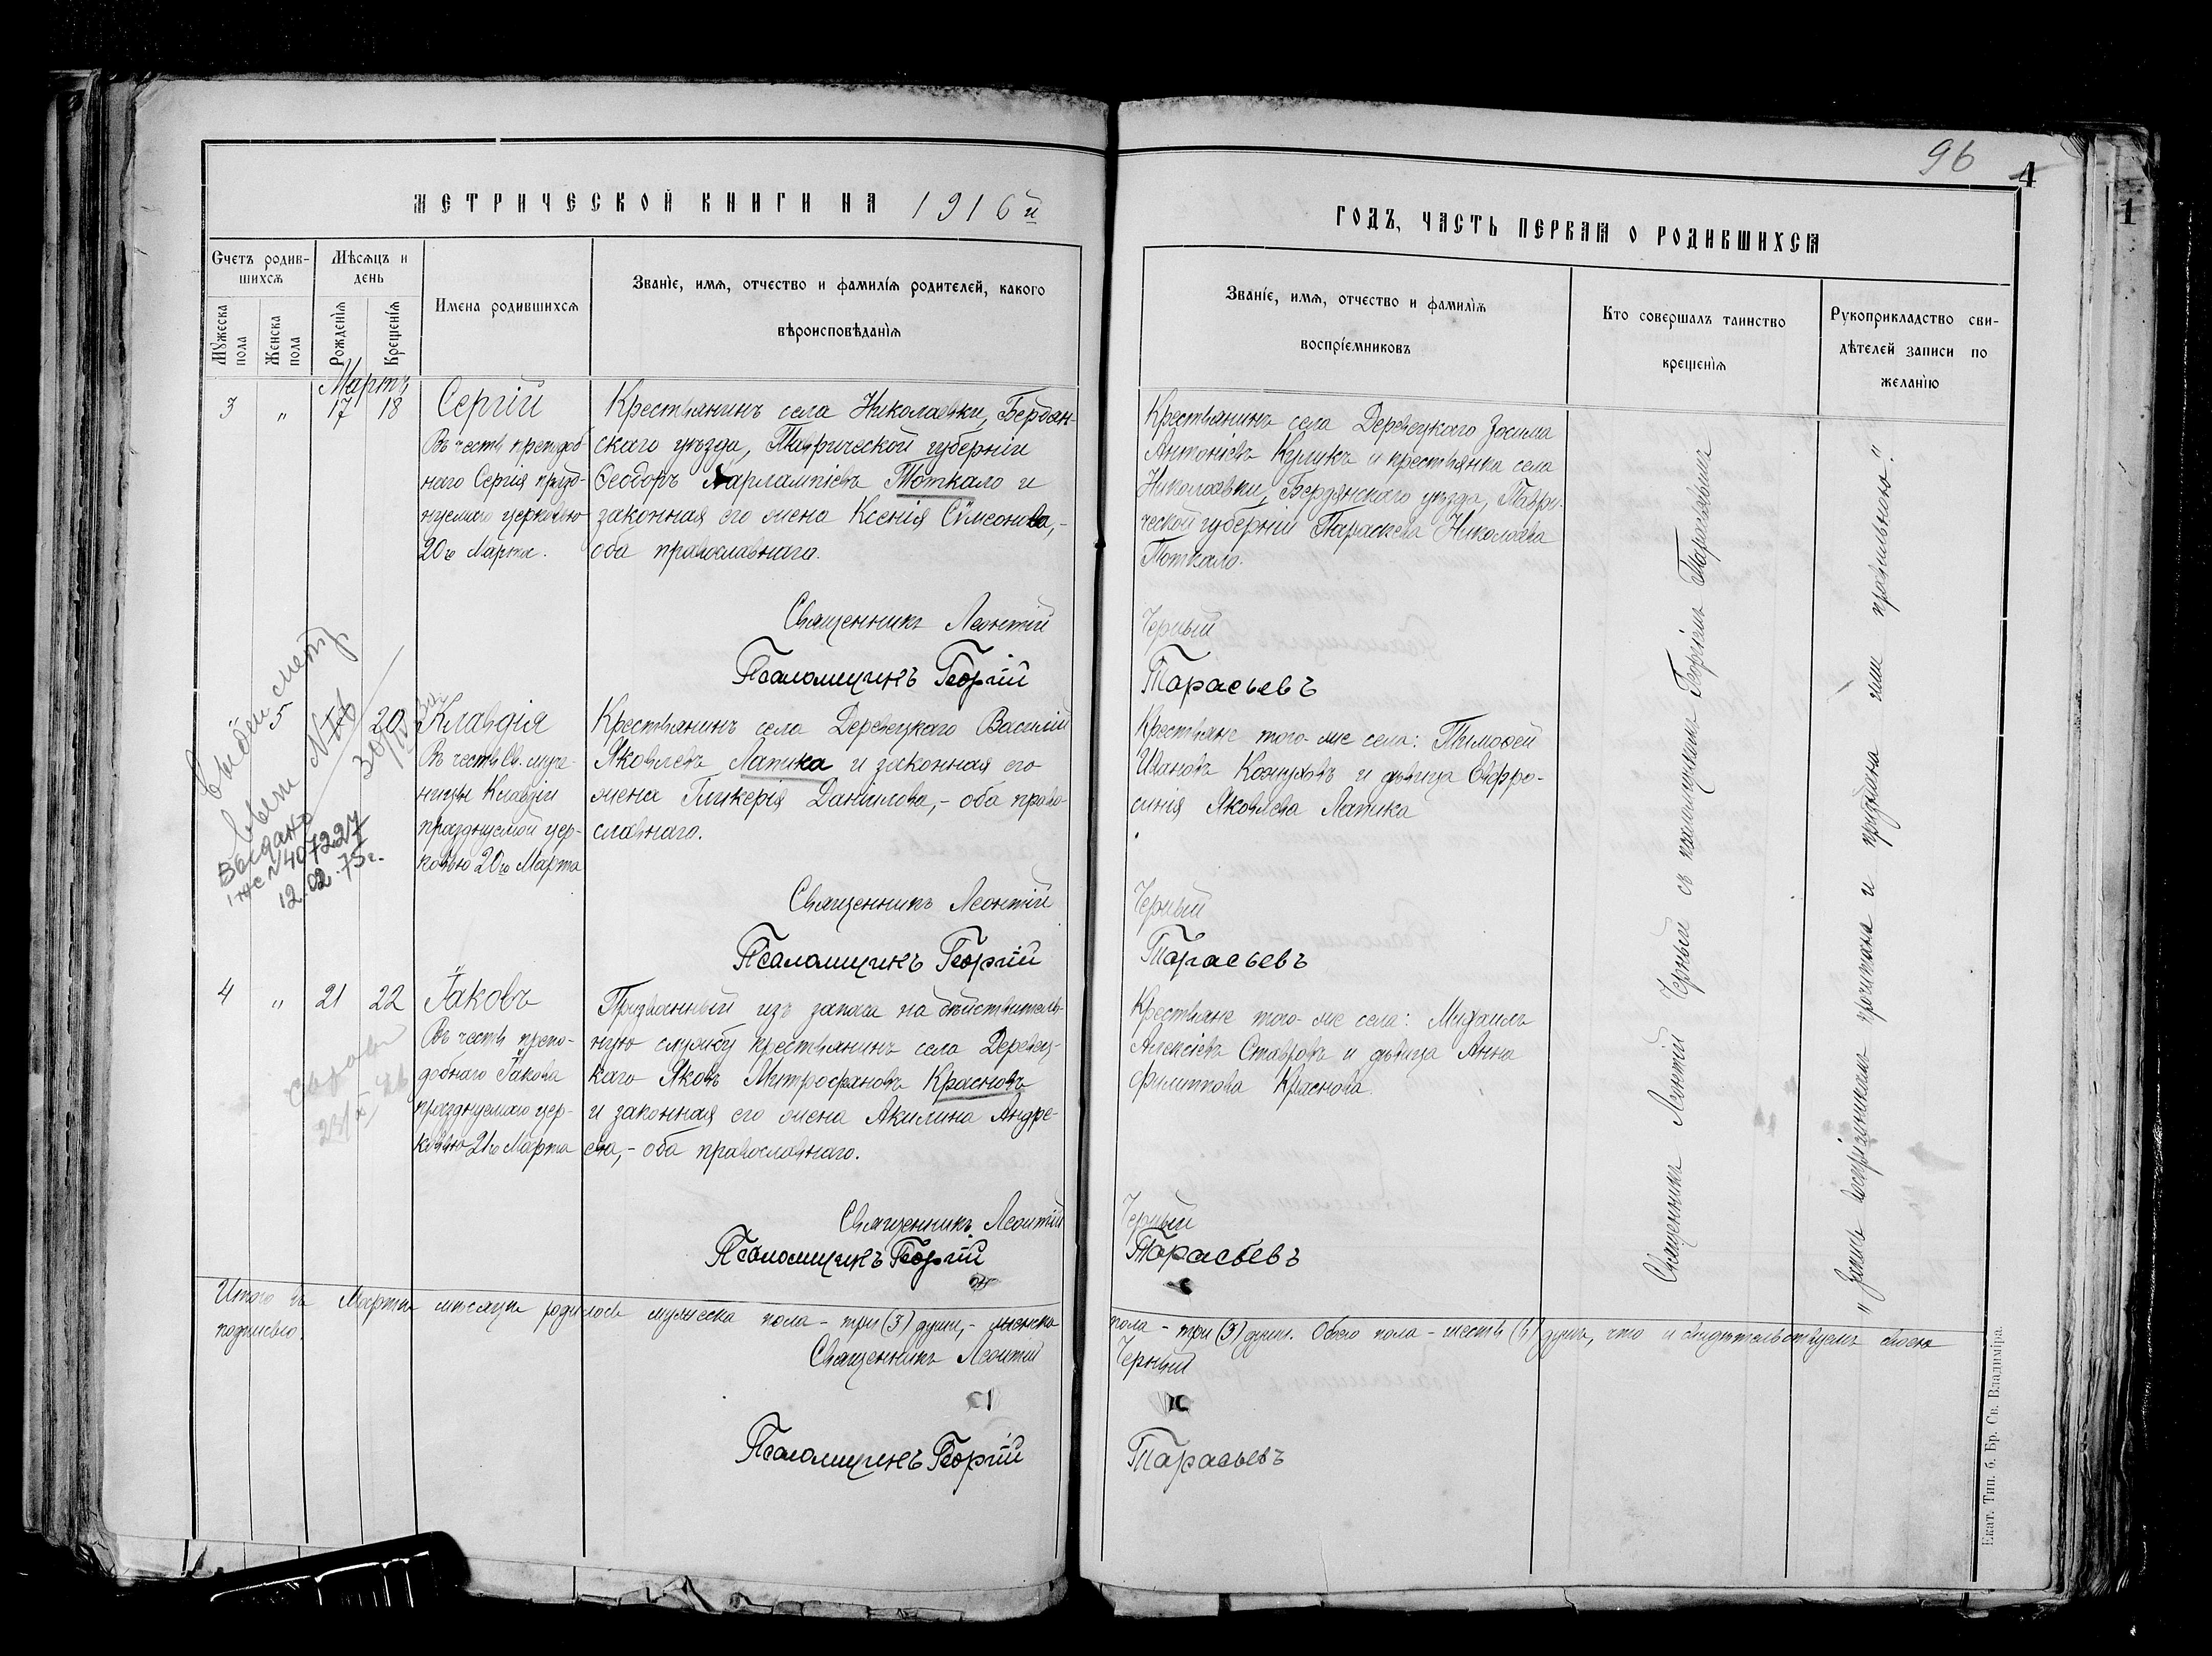 МЕТРИЧЕСКОЙ КНИГИ НА 1916й
Счетъ родив-
шихся
Мѣсяцъ и
день
Имена родившихся
Званіе, имя, отчество и фамилія родителей, какого
вѣроисповѣданія
Мужеска
пола
Женска
пола
Рожденія
Крещенія
Мартъ
3 " 17 18
Сергій
Въ честь преподоб-
наго Сергія празд-
нуемаго церковью
20го Марта.
Крестьянинъ села Николаевки, Бердян-
скаго уѣзда, Таврической губерніи
Ѳеодоръ Харлампіевъ Тоткало и
законная его жена Ксенія Сѵмеонова,-
оба православнаго.
Священникъ Леонтій
Псаломщикъ Георгій
20
Клавдія
Въ честь Св. муче-
ницы Клавдіи
празднуемой цер-
ковью 20го Марта
Крестьянинъ села Деревецкаго Василій
Яковлевъ Латика и законная его
жена Гликерія Даніилова,- оба право-
славнаго.
Выдано
№407227
12.02.75г.
Священникъ Леонтій
Псаломщикъ Георгій
4 " 21 22
Іаковъ
Въ честь препо-
добнаго Іакова
празднуемаго цер-
ковью 21го Марта
Призванный изъ запаса на дѣйствитель-
ную службу крестьянинъ села Деревец-
каго Яковъ Митрофановъ Красновъ
и законная его жена Акилина Андре-
ева,- оба православнаго.
Священникъ Леонтій
Псаломщикъ Георгій
Итого въ Мартѣ мѣсяцѣ родилось мужеска пола - три (3) души,- женска
подписью.
Священникъ Леонтій
Псаломщикъ Георгій
96
4
1
ГОДЪ, ЧАСТЬ ПЕРВАЯ О РОДИВШИХСЯ
Званіе, имя, отчество и фамилія
воспріемниковъ
Кто совершалъ таинство
крещенія
Рукоприкладство сви-
дѣтелей записи по
желанію
Крестьянинъ села Деревецкаго Зосима
Антоніевъ Куликъ и крестьянка села
Николаевки, Бердянскаго уѣзда, Таври-
ческой губерніи Параскева Николаева
Тоткало.
Черный
Тарасьевъ
Крестьяне того-же села: Тимоѳей
Ивановъ Кожуховъ и дѣвица Евфро-
синія Яковлева Латика
Черный
Тарасьевъ
Крестьяне того-же села: Михаилъ
Алексіевъ Ставровъ и дѣвица Анна
Филиппова Краснова.
Черный
Тарасьевъ
Священникъ Леонтій Черный съ псаломщикомъ Георгіемъ Тарасьевымъ
"Запись воспріемниками прочитана и признана ими правильною".
пола - три (3) души. Обоего пола - шесть (6) душъ, что и свидѣтельствуемъ своею
Черный
Тарасьевъ
Екат. Тип. б. Бр. Св. Владиміра.